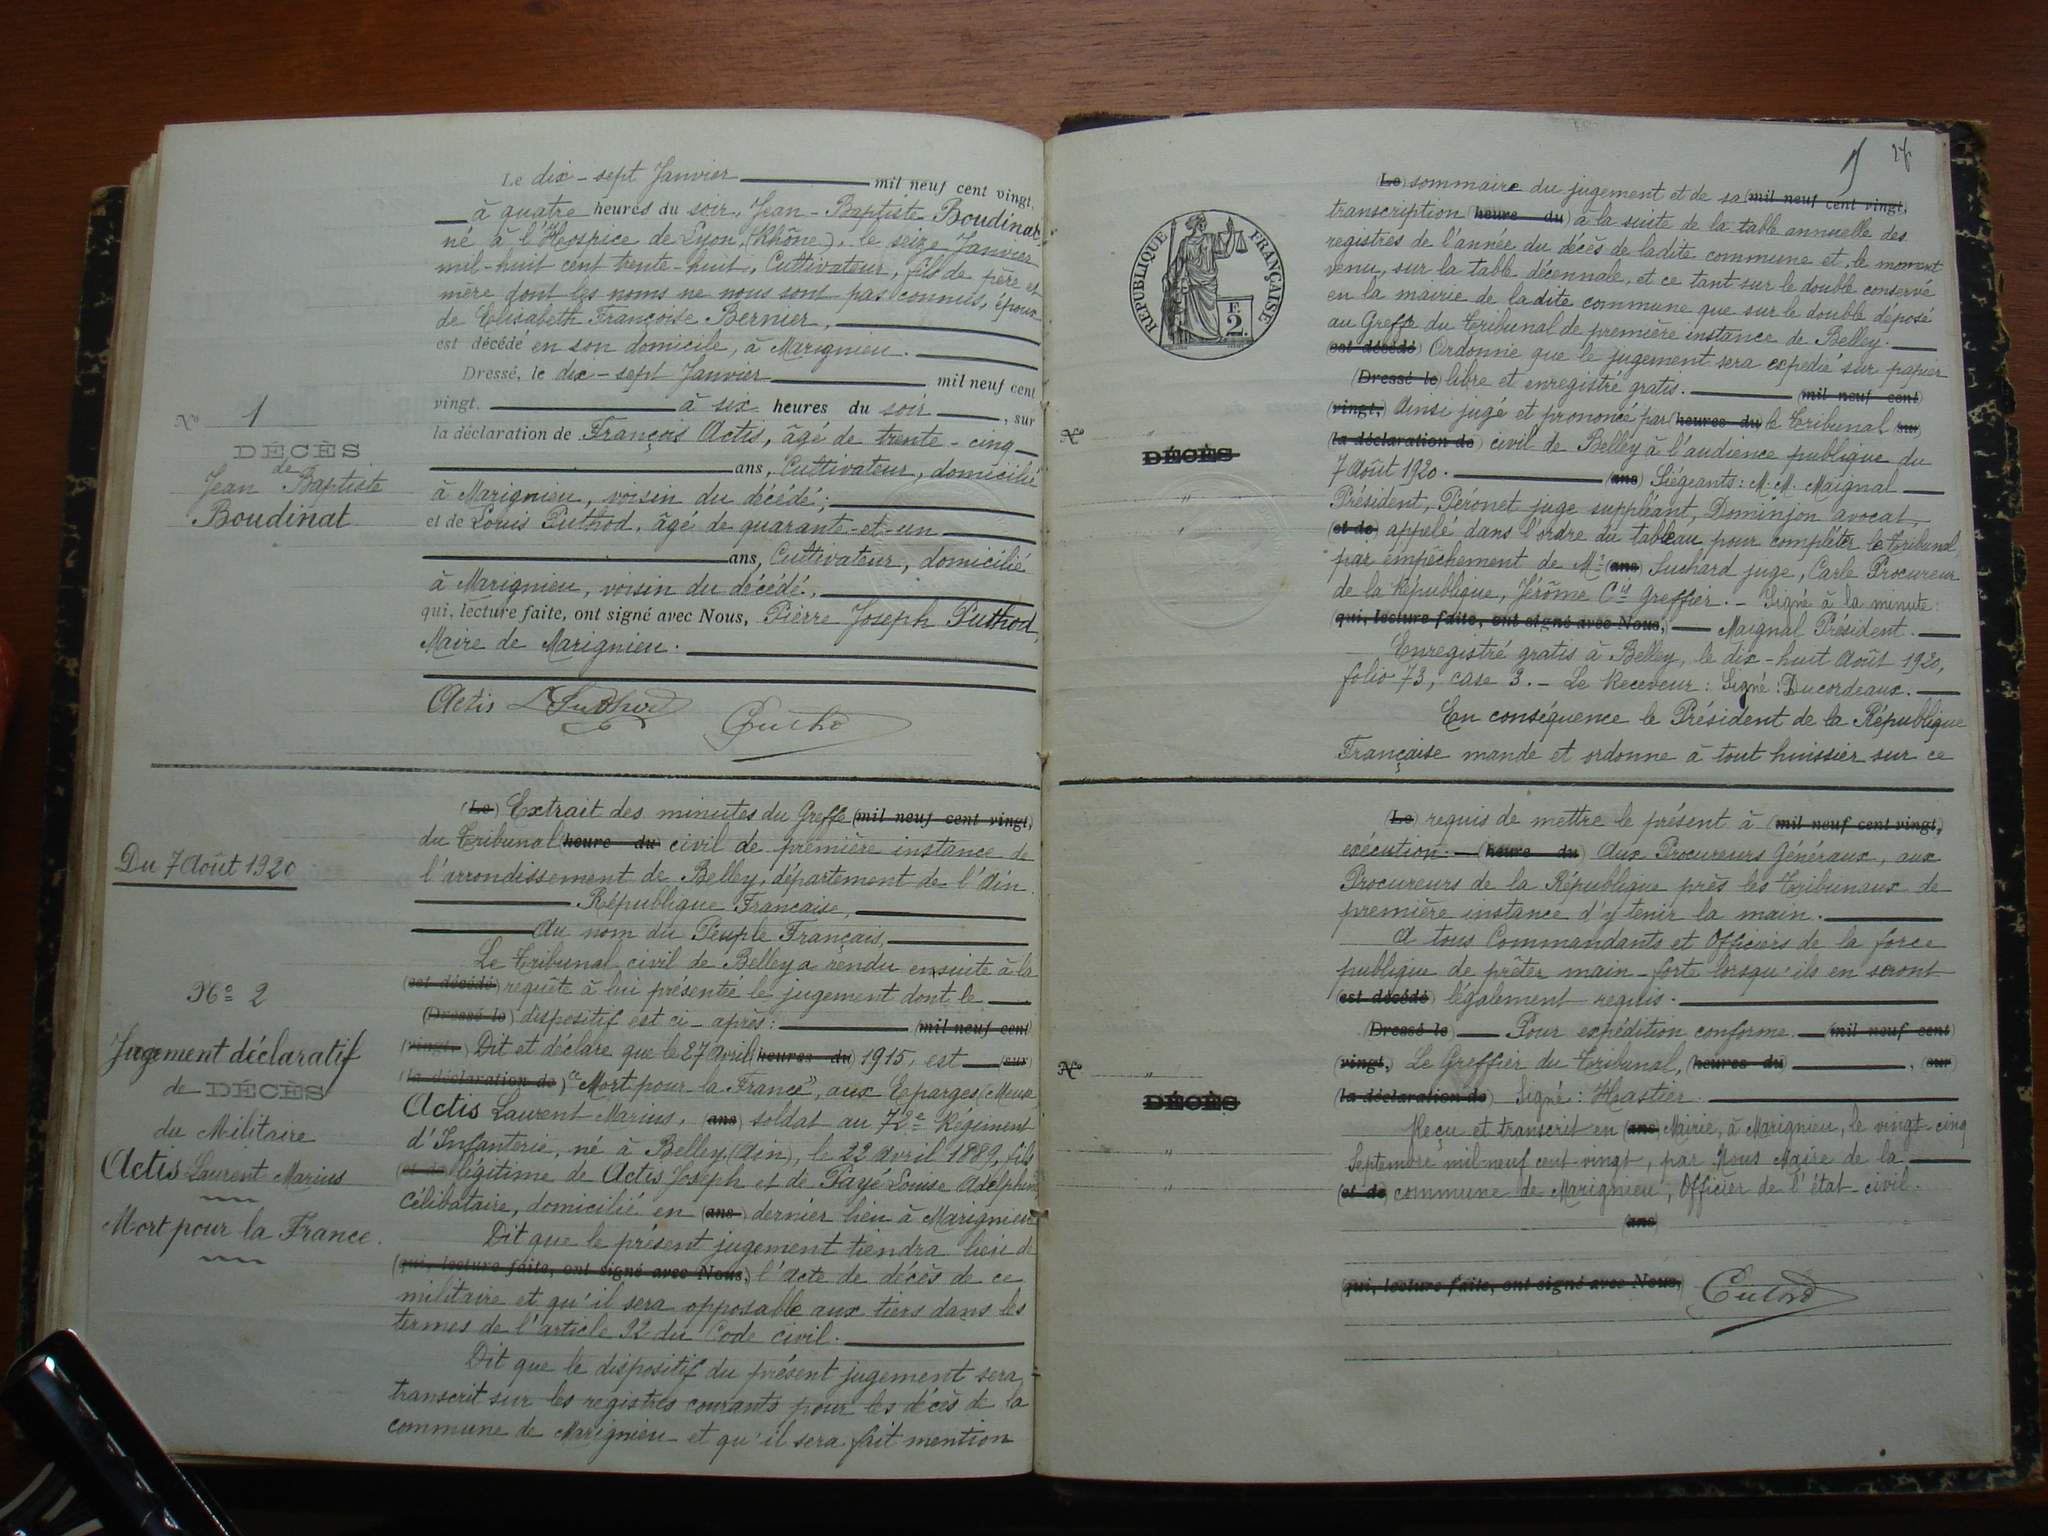 Le dix-sept Janvier mil neuf cent vingt,
à quatre heures du soir, Jean-Baptiste Boudinat
né à l'Hospice de Lyon, (Rhône), le seize Janvier
mil-huit cent trente-huit, Cultivateur, fils de père et
mère dont les noms ne nous sont pas connus, époux
de Elisabeth Françoise Bernier,
est décédé en son domicile, à Marignieu.
Dressé, le dix-sept Janvier mil neuf cent
vingt. à six heures du soir, sur
la déclaration de François Actis, âgé de trente-cinq
ans, Cultivateur, domicilié
à Marignieu, voisin du décédé;
et de Louis Puthod, âgé de quarante-et-un
ans, Cultivateur, domicilié
à Marignieu, voisin du décédé,
qui, lecture faite, ont signé avec Nous, Pierre Joseph Puthod,
Maire de Marignieu.
Actis L Puthod Puthod
No 1
DÉCÈS
de
Jean Baptiste
Boudinat
Du 7 Août 1920
No 2
Jugement déclaratif
de DÉCÈS
du Militaire
Actis Laurent Marius
Mort pour la France.
(Le) Extrait des minutes du Greffe (mil neuf cent vingt,)
du Tribunal (heure du) civil de première instance de
l'arrondissement de Belley, département de l'Ain.
République Française,
Au nom du Peuple Français,
Le Tribunal civil de Belley a rendu ensuite à la
(est décédé) requête à lui présentée le jugement dont le
(Dressé le) dispositif est ci-après: (mil neuf cent)
(vingt,) Dit et déclare que le 27 Avril (heures du) 1915, est (sur)
(la déclaration de) "Mort pour la France", aux Eparges (Meuse)
Actis Laurent Marius, (ans) soldat au 72e Régiment
d'Infanterie, né à Belley (Ain), le 22 avril 1889, fils
(et de) légitime de Actis Joseph et de Payé Louise Adelphine
célibataire, domicilié en (ans) dernier lieu à Marignieu
Dit que le présent jugement tiendra lieu de
(qui, lecture faite, ont signé avec Nous,) l'acte de décès de ce
militaire et qu'il sera opposable aux tiers dans les
termes de l'article 92 du Code civil.
Dit que le dispositif du présent jugement sera
transcrit sur les registres courants pour les décès de la
commune de Marignieu et qu'il sera fait mention
RÉPUBLIQUE FRANÇAISE
2 F.
(Le) sommaire du jugement et de sa (mil neuf cent vingt,)
transcription (heure du) à la suite de la table annuelle des
registres de l'année du décès de ladite commune et, le moment
venu, sur la table décennale, et ce tant sur le double conservé
en la mairie de ladite commune que sur le double déposé
au Greffe du Tribunal de première instance de Belley.
(est décédé) Ordonne que le jugement sera expédié sur papier
(Dressé le) libre et enregistré gratis. (mil neuf cent)
(vingt,) Ainsi jugé et prononcé par (heures du) le Tribunal (sur)
(la déclaration de) civil de Belley à l'audience publique du
7 Août 1920. (ans) Siégeants: M.M. Maignal
Président, Péronet juge suppléant, Dominjon avocat,
(et de) appelé dans l'ordre du tableau pour compléter le Tribunal,
par empêchement de Mr (ans) Suchard juge, Carle Procureur
de la République, Jérôme Cis Greffier. - Signé à la minute:
(qui, lecture faite, ont signé avec Nous,) Maignal Président.
Enregistré gratis à Belley, le dix-huit Août 1920,
folio 73, case 3. - Le Receveur: Signé: Ducordeaux.
En conséquence le Président de la République
Française mande et ordonne à tout huissier sur ce
No "
DÉCÈS
"
"
(Le) requis de mettre le présent à (mil neuf cent vingt,)
exécution. (heure du) Aux Procureurs Généraux, aux
Procureurs de la République près les Tribunaux de
première instance d'y tenir la main.
A tous Commandants et Officiers de la force
publique de prêter main-forte lorsqu'ils en seront
(est décédé) légalement requis.
(Dressé le) Pour expédition conforme. (mil neuf cent)
(vingt,) Le Greffier du Tribunal, (heures du) , (sur)
(la déclaration de) Signé: Hastier.
Reçu et transcrit en (ans) Mairie, à Marignieu, le vingt-cinq
Septembre mil-neuf cent-vingt, par Nous Maire de la
(et de) commune de Marignieu, Officier de l'état-civil.
(ans)
(qui, lecture faite, ont signé avec Nous,) Puthod
No "
DÉCÈS
"
"